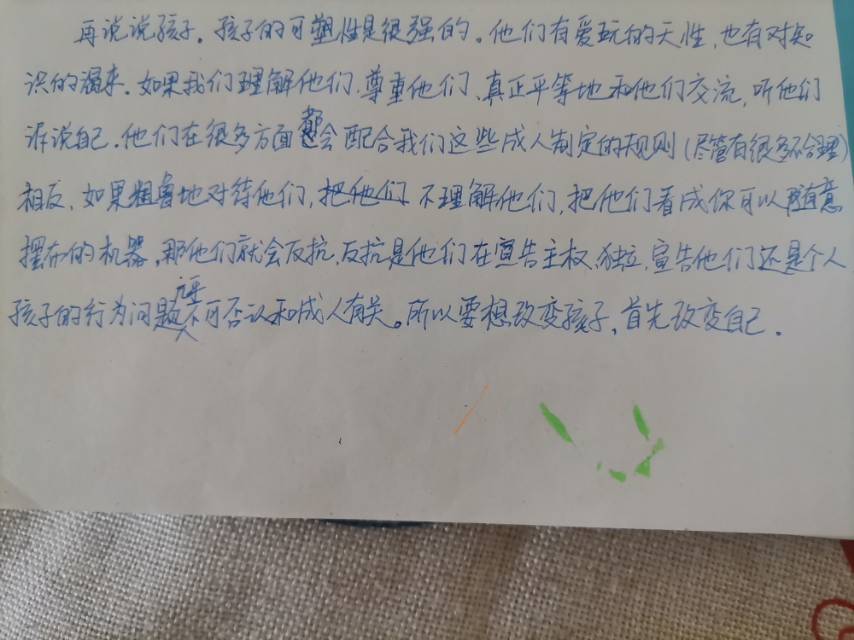 再说说孩子。孩子的可塑性是很强的。他们有爱玩的天性,也有对知
识的渴求。如果我们理解他们、尊重他们、真正平等地和他们交流,听他们
诉说自己,他们在很多方面都会配合我们这些成人制定的规则(尽管有很多不合理)
相反,如果粗鲁地对待他们,把他们 不理解他们,把他们看成你可以随意
摆布的机器,那他们就会反抗,反抗是他们在宣告主权、独立,宣告他们还是个人
孩子的行为问题不可否认和成人有关。所以要想改变孩子,首先改变自己.